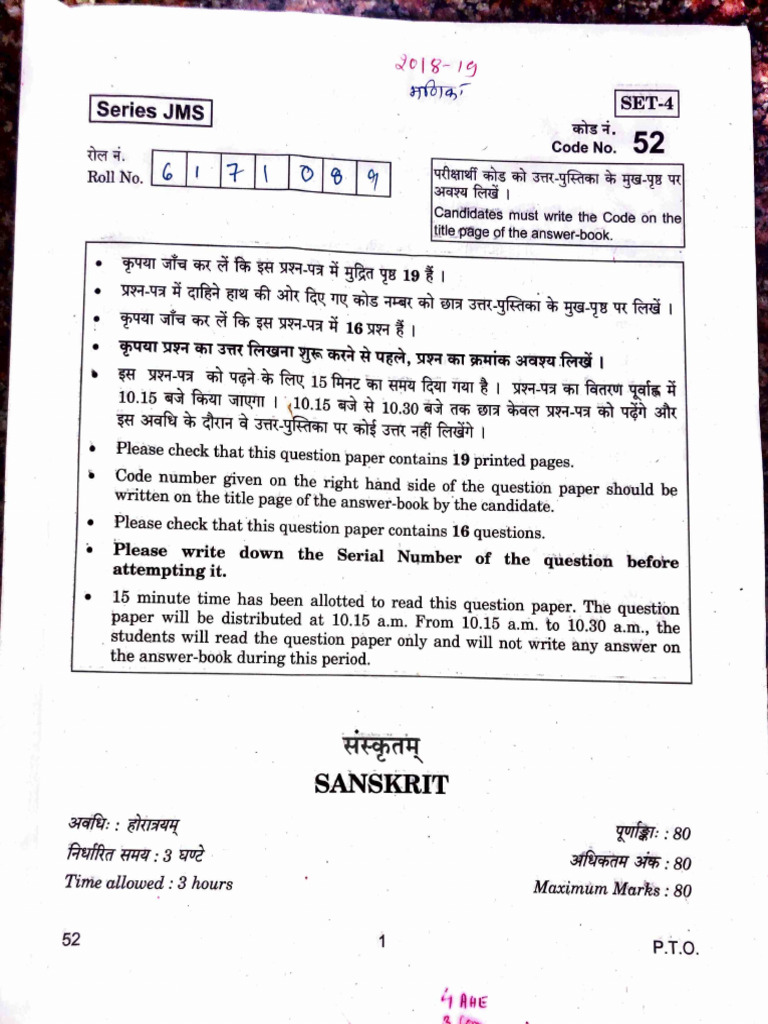 2018-19
मणिका
Series JMS
SET-4
कोड नं.
Code No. 52
रोल नं.
Roll No. 6 1 7 1 0 8 9
परीक्षार्थी कोड को उत्तर-पुस्तिका के मुख-पृष्ठ पर
अवश्य लिखें ।
Candidates must write the Code on the
title page of the answer-book.
• कृपया जाँच कर लें कि इस प्रश्न-पत्र में मुद्रित पृष्ठ 19 हैं ।
• प्रश्न-पत्र में दाहिने हाथ की ओर दिए गए कोड नम्बर को छात्र उत्तर-पुस्तिका के मुख-पृष्ठ पर लिखें ।
• कृपया जाँच कर लें कि इस प्रश्न-पत्र में 16 प्रश्न हैं ।
• कृपया प्रश्न का उत्तर लिखना शुरू करने से पहले, प्रश्न का क्रमांक अवश्य लिखें ।
• इस प्रश्न-पत्र को पढ़ने के लिए 15 मिनट का समय दिया गया है । प्रश्न-पत्र का वितरण पूर्वाह्न में
10.15 बजे किया जाएगा । 10.15 बजे से 10.30 बजे तक छात्र केवल प्रश्न-पत्र को पढ़ेंगे और
इस अवधि के दौरान वे उत्तर-पुस्तिका पर कोई उत्तर नहीं लिखेंगे ।
• Please check that this question paper contains 19 printed pages.
• Code number given on the right hand side of the question paper should be
written on the title page of the answer-book by the candidate.
• Please check that this question paper contains 16 questions.
• Please write down the Serial Number of the question before
attempting it.
• 15 minute time has been allotted to read this question paper. The question
paper will be distributed at 10.15 a.m. From 10.15 a.m. to 10.30 a.m., the
students will read the question paper only and will not write any answer on
the answer-book during this period.
संस्कृतम्
SANSKRIT
अवधिः : होरात्रयम्
पूर्णाङ्काः : 80
निर्धारित समय : 3 घण्टे
अधिकतम अंक : 80
Time allowed : 3 hours
Maximum Marks : 80
52
1
P.T.O.